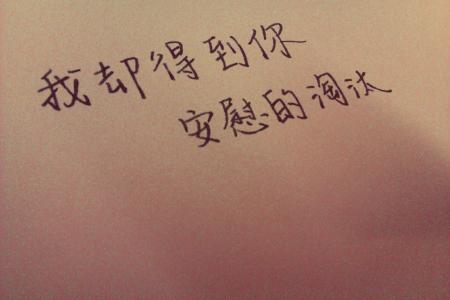 我却得到你
安慰的淘汰